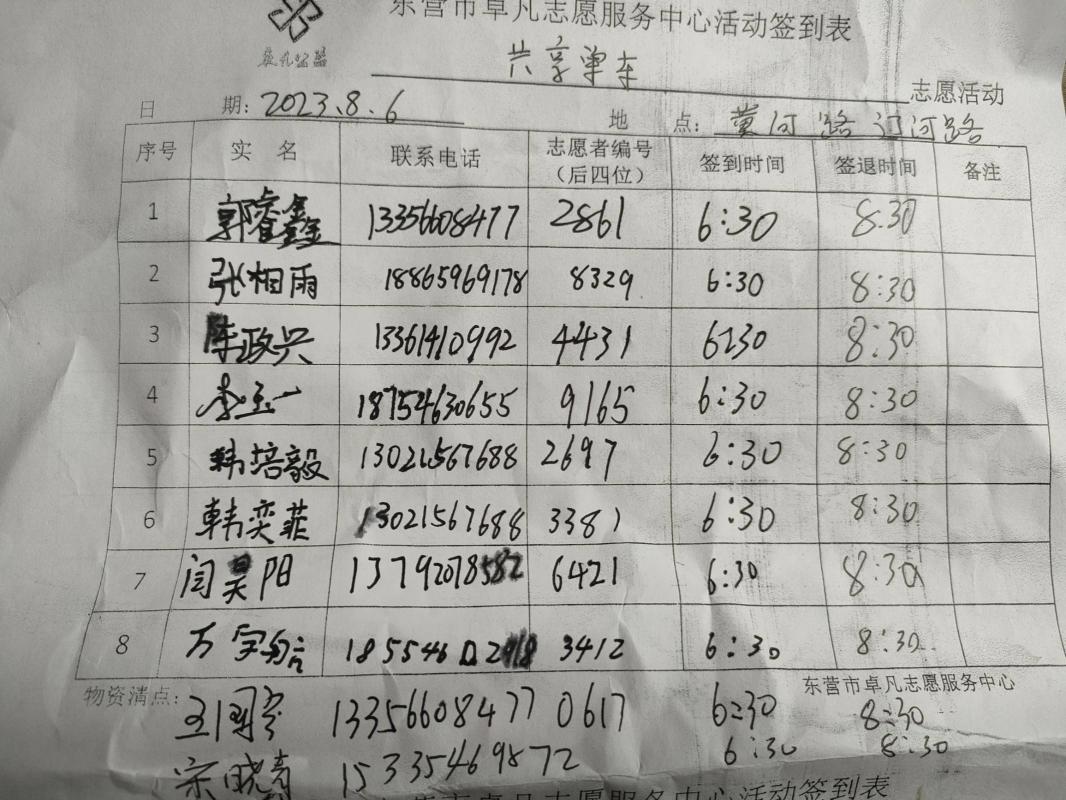 东营市卓凡志愿服务中心活动签到表
卓凡公益
共享单车 志愿活动
日 期: 2023.8.6 地 点: 黄河路 辽河路
序号 实 名 联系电话 志愿者编号(后四位) 签到时间 签退时间 备注
1 郭睿鑫 13356608477 2861 6:30 8:30
2 张相雨 18865969178 8329 6:30 8:30
3 陈政兴 13361410992 4431 6:30 8:30
4 李玉一 18754630655 9165 6:30 8:30
5 韩培毅 13021567688 2697 6:30 8:30
6 韩奕菲 13021567688 3381 6:30 8:30
7 闫昊阳 13792078582 6421 6:30 8:30
8 万 3412 6:30 8:30
物资清点: 东营市卓凡志愿服务中心
王 13356608477 0617 6:30 8:30
宋晓青 15335469872 6:30 8:30
东营市卓凡志愿服务中心活动签到表